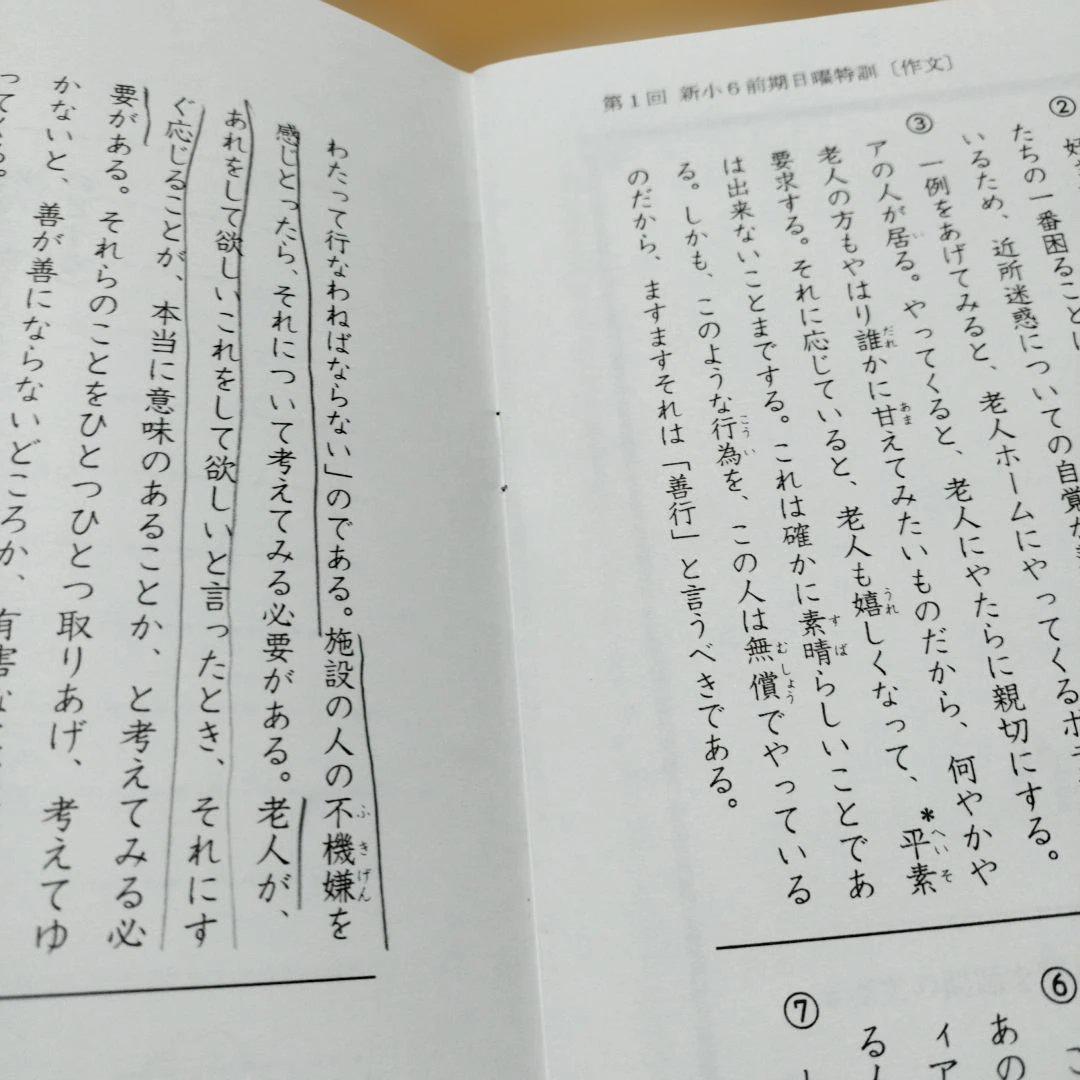 第1回 新小6前期日曜特訓〔作文〕
②
たちの一番困ることは
いるため、近所迷惑についての自覚が
③ 一例をあげてみると、老人ホームにやってくるボラ
アの人が居る。やってくると、老人にやたらに親切にする。
老人の方もやはり誰かに甘えてみたいものだから、何やかや
要求する。それに応じていると、老人も嬉しくなって、*平素
は出来ないことまでする。これは確かに素晴らしいことであ
る。しかも、このような行為を、この人は無償でやっている
のだから、ますますそれは「善行」と言うべきである。
⑥
あの
ィア
⑦
る
わたって行なわねばならない」のである。施設の人の不機嫌を
感じとったら、それについて考えてみる必要がある。老人が、
あれをして欲しいこれをして欲しいと言ったとき、それにす
ぐ応じることが、本当に意味のあることか、と考えてみる必
要がある。それらのことをひとつひとつ取りあげ、考えてゆ
かないと、善が善にならないどころか、有害な
ってくる。